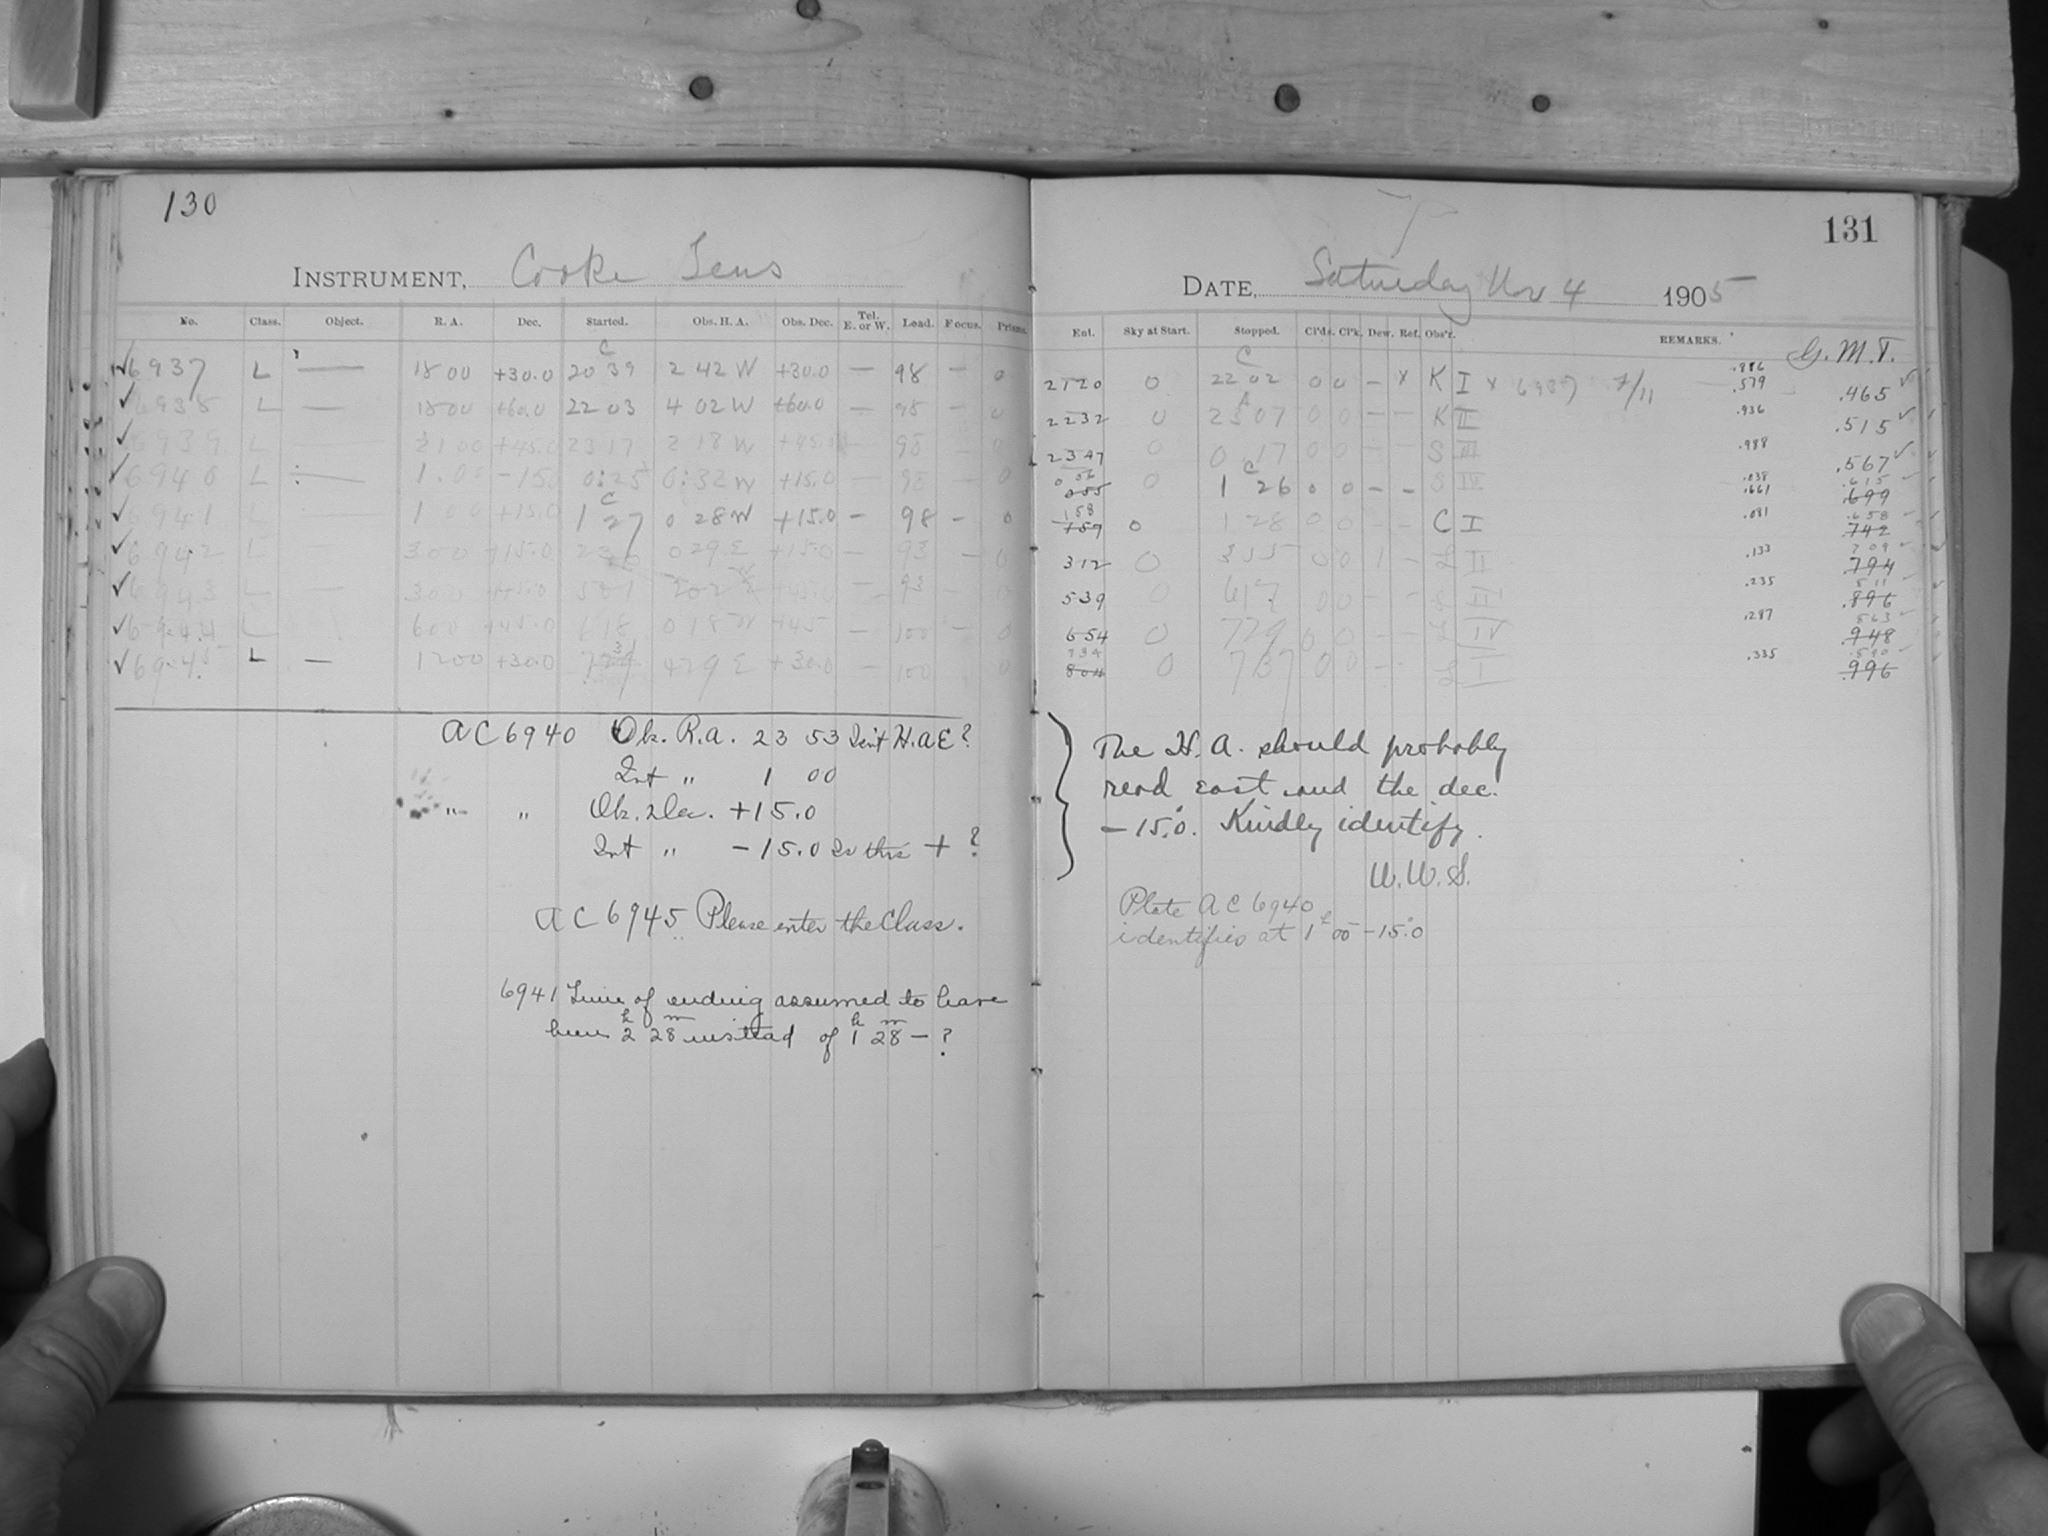 130
INSTRUMENT, Cooke Lens
No. Class. Object. R. A. Dec. Started. Obs. H. A. Obs. Dec. Tel. E. or W. Load. Focus. Prisms.
✓6937 L — 18 00 +30.0 20 39 2 42 W +30.0 — 98 — 0
✓6938 L — 18 00 +60.0 22 03 4 02 W +60.0 — 98 — 0
✓6939 L — 21 00 +45.0 23 17 2 18 W +45.0 98 0
✓6940 L — 1.00 -15.0 0:25 0:32 W +15.0 — 98 — 0
✓6941 L — 1 00 +15.0 1 27 0 28 W +15.0 — 98 — 0
✓6942 L — 3 00 +15.0 2 36 0 29 E +15.0 — 93 — 0
✓6943 L — 3 00 +45.0 5 01 +45.0 — 93 — 0
✓6944 L 6 00 +45.0 6 18 0 18 W +45 — 100 — 0
✓6945 L — 12 00 +30.0 4 29 E +30.0 — 100 0
AC 6940 Ob. R.A. 23 53 Isn't H.A E?
Int " 1 00
" " Ob. Dec. +15.0
Int " -15.0 Is this + ?
AC 6945 Please enter the Class.
6941 Time of ending assumed to have
been 2h 28m instead of 1h 28m - ?
131
DATE, Saturday Nov 4 1905
Ent. Sky at Start. Stopped. Cl'ds. Cl'k. Dew. Ref. Obs'r. REMARKS. G. M. T.
21 20 0 22 02 0 0 — x K I x 6937 7/11 .886 .579 .465 ✓
22 32 0 23 07 0 0 — — K II .936 .515 ✓
23 47 0 0 17 0 0 — — S III .988 .567 ✓
0 56 0 55 0 1 26 0 0 — — S IV .038 .661 .615 .699
1 58 1 57 0 1 28 0 0 — — C I .081 .658 .742
3 12 0 3 55 0 0 1 — L II .133 .709 .794
5 39 0 6 17 0 0 — — L III .235 .811 .896
6 54 0 7 29 0 0 — — L IV .287 .863 .948
7 34 8 04 0 7 37 0 0 — — L I .335 .996
The H. A. should probably
read east and the dec.
-15.°0. Kindly identify.
W. W. S.
Plate AC 6940
identifies at 1h 00m -15.°0